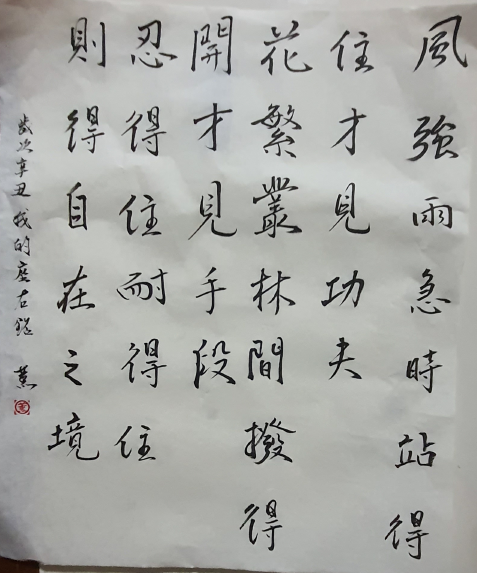 風強雨急時站得
住才見功夫
花繁叢林間撥得
開才見手段
忍得住耐得住
則得自在之境
歲次辛丑 我的座右銘